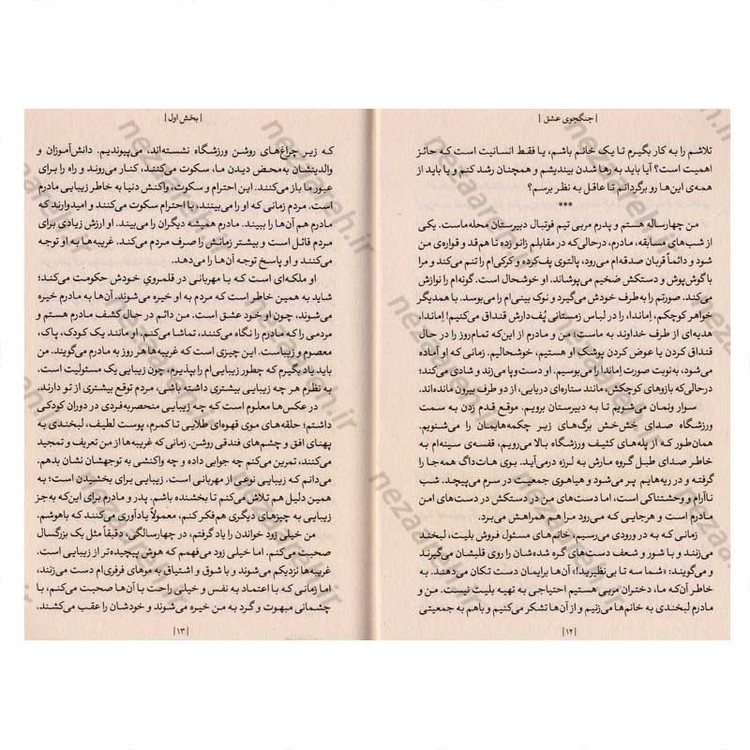 | جنگجوی عشق |
تلاشم را به کار بگیرم تا یک خانم باشم، یا فقط انسانیت است که حائز
اهمیت است؟ آیا باید به رها شدن بیندیشم و همچنان رشد کنم و یا باید از
همه‌ی این‌ها رو برگردانم تا عاقل به نظر برسم؟
***
من چهارساله هستم و پدرم مربی تیم فوتبال دبیرستان محله‌ماست. یکی
از شب‌های مسابقه، مادرم، درحالی‌که در مقابلم زانو زده تا هم‌قد و قواره‌ی من
شود و دائماً قربان صدقه‌ام می‌رود، پالتوی پف‌کرده و کرکی‌ام را تنم می‌کند و مرا
با گوش‌پوش و دستکش ضخیم می‌پوشاند. او خوشحال است. گونه‌ام را نوازش
می‌کند. صورتم را به‌طرف خودش می‌گیرد و نوک بینی‌ام را می‌بوسد. با همدیگر
خواهر کوچکم، اِماندا، را در لباس زمستانی پُف‌دارش قنداق می‌کنیم؛ اِماندا،
هدیه‌ای از طرف خداوند به ماست؛ من و مادرم از این‌که تمام‌روز را در حال
قنداق کردن یا عوض کردن پوشک او هستیم، خوشحالیم. زمانی که او آماده
می‌شود، به‌نوبت صورت اِماندا را می‌بوسیم. او دست‌وپا می‌زند و شادی می‌کند؛
درحالی‌که بازوهای کوچکش، مانند ستاره‌ای دریایی، از دو طرف بیرون مانده‌اند.
سوار ونمان می‌شویم تا به دبیرستان برویم. موقع قدم زدن به سمت
ورزشگاه صدای خش‌خش برگ‌های زیر چکمه‌هایمان را می‌شنویم.
همان‌طور که از پله‌های کثیف ورزشگاه بالا می‌رویم، قفسه‌ی سینه‌ام به
خاطر صدای طبل گروه مارش به لرزه درمی‌آید. بوی هات‌داگ همه‌جا را
گرفته و در ریه‌هایم پر می‌شود و هیاهوی جمعیت در سرم می‌پیچد. شب
ناآرام و وحشتناکی است، اما دست‌های من در دستکش در دست‌های امن
مادرم است و هرجایی که می‌رود مرا هم همراهش می‌برد.
زمانی که به در ورودی می‌رسیم، خانم‌های مسئول فروش بلیت، لبخند
می‌زنند و با شور و شعف دست‌های گره شده‌شان را روی قلبشان می‌گیرند
و می‌گویند: «شما سه تا بی‌نظیرید!» آن‌ها برایمان دست تکان می‌دهند. به
خاطر آن‌که ما، دختران مربی هستیم احتیاجی به تهیه بلیت نیست. من و
مادرم لبخندی به خانم‌ها می‌زنیم و از آن‌ها تشکر می‌کنیم و باهم به جمعیتی
| ۱۲ |
| بخش اول |
که زیر چراغ‌های روشن ورزشگاه نشسته‌اند، می‌پیوندیم. دانش‌آموزان و
والدینشان به‌محض دیدن ما، سکوت می‌کنند، کنار می‌روند و راه را برای
عبور ما باز می‌کنند. این احترام و سکوت، واکنش دنیا به خاطر زیبایی مادرم
است. مردم زمانی که او را می‌بینند، با احترام سکوت می‌کنند و امیدوارند که
مادرم هم آن‌ها را ببیند. مادرم همیشه دیگران را می‌بیند. او ارزش زیادی برای
مردم قائل است و بیشتر زمانش را صرف مردم می‌کند. غریبه‌ها به او توجه
می‌کنند و او پاسخ توجه آن‌ها را می‌دهد.
او ملکه‌ای است که با مهربانی در قلمروی خودش حکومت می‌کند؛
شاید به همین خاطر است که مردم به او خیره می‌شوند. آن‌ها به مادرم خیره
می‌شوند، چون او خود عشق است. من دائم در حال کشف مادرم هستم و
مردمی را که مادرم را نگاه می‌کنند، تماشا می‌کنم. او مانند یک کودک، پاک،
معصوم و زیباست. این چیزی است که غریبه‌ها هر روز به مادرم می‌گویند. من
باید یاد بگیرم که چطور زیبایی‌ام را بپذیرم، چون زیبایی یک مسئولیت است.
به نظرم هر چه زیبایی بیشتری داشته باشی، مردم توقع بیشتری از تو دارند.
در عکس‌ها معلوم است که چه زیبایی منحصربه‌فردی در دوران کودکی
داشتم؛ حلقه‌های موی قهوه‌ای طلایی تا کمرم، پوست لطیف، لبخندی به
پهنای افق و چشم‌های فندقی روشن. زمانی که غریبه‌ها از من تعریف و تمجید
می‌کنند، تمرین می‌کنم چه جوابی داده و چه واکنشی به توجهشان نشان بدهم.
می‌دانم که زیبایی نوعی از مهربانی است. زیبایی برای بخشیدن است؛ به
همین دلیل هم تلاش می‌کنم تا بخشنده باشم. پدر و مادرم برای این‌که به‌جز
زیبایی به چیزهای دیگری هم فکر کنم، معمولاً یادآوری می‌کنند که باهوشم.
من خیلی زود خواندن را یاد گرفتم، در چهارسالگی، دقیقاً مثل یک بزرگسال
صحبت می‌کنم. اما خیلی زود می‌فهمم که هوش پیچیده‌تر از زیبایی است.
غریبه‌ها نزدیکم می‌شوند و با شوق و اشتیاق به موهای فرفری‌ام دست می‌زنند،
اما زمانی که با اعتماد به نفس و خیلی راحت با آن‌ها صحبت می‌کنم، با
چشمانی مبهوت و گرد به من خیره می‌شوند و خودشان را عقب می‌کشند.
| ۱۳ |
nezaareh.ir